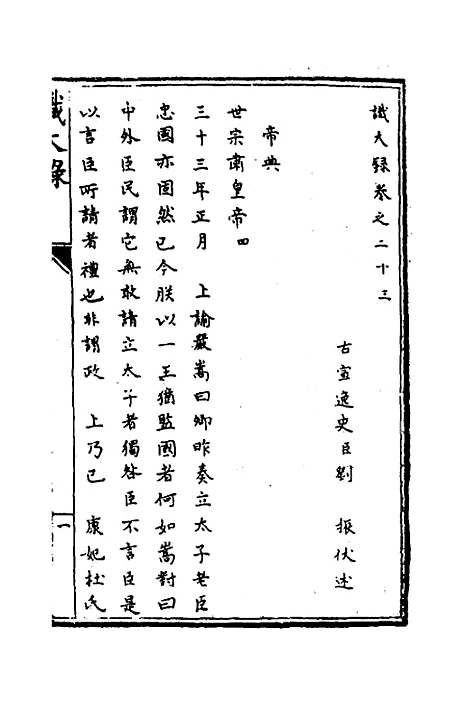 識大錄卷之二十三
古宣逸史臣劉　振伏述
帝典
世宗肅皇帝四
三十三年正月　上諭嚴嵩曰卿昨奏立太子老臣
忠國亦固然已今朕以一王猶監國者何如嵩對曰
中外臣民謂它無敢請立太子者獨咎臣不言臣是
以言臣所請者禮也非謂政　上乃已　康妃杜氏
識大錄
一